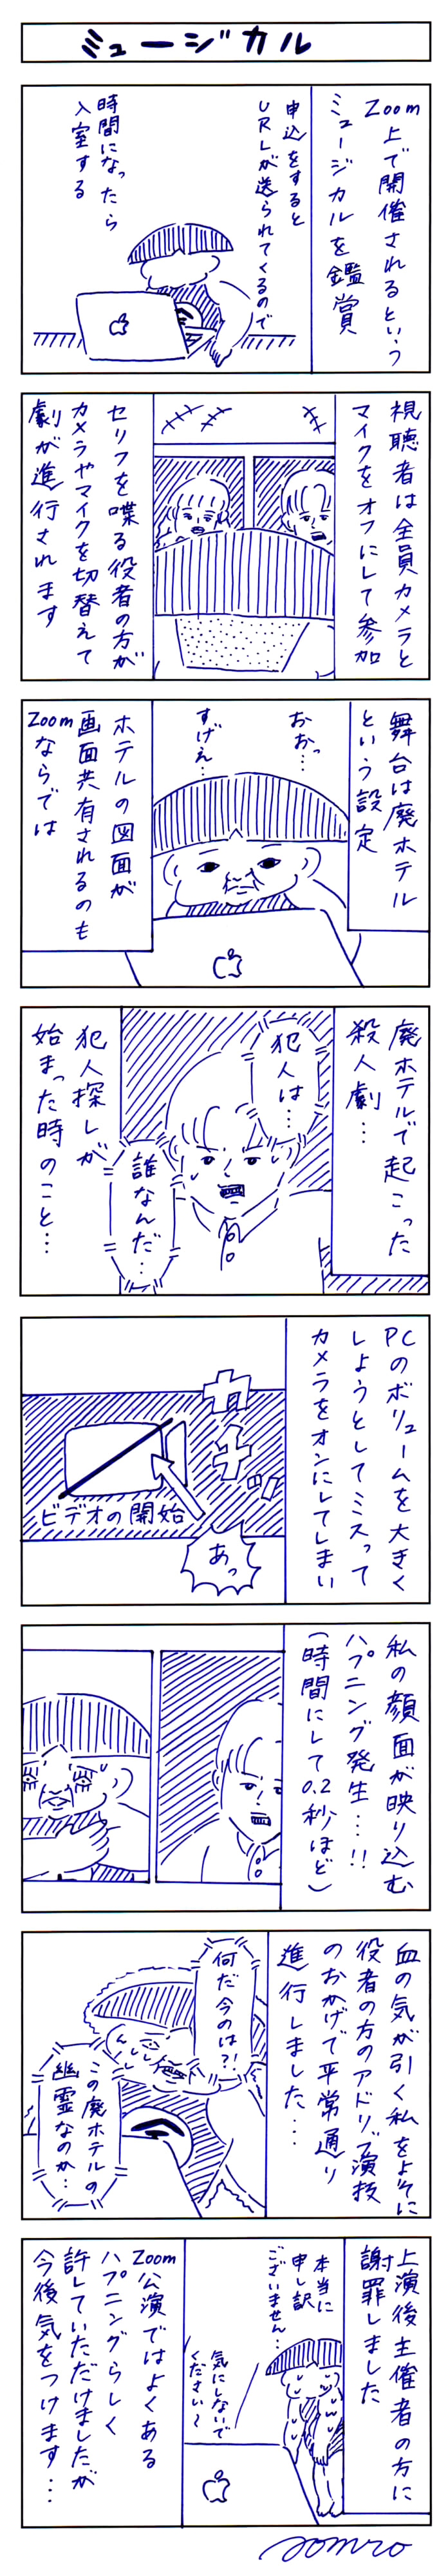 ミュージカル
Zoom上で開催されるという
ミュージカルを鑑賞
申込をすると
URLが送られてくるので
時間になったら
入室する
視聴者は全員カメラと
マイクをオフにして参加
セリフを喋る役者の方が
カメラやマイクを切替えて
劇が進行されます
舞台は廃ホテル
という設定
おおっ…
すげえ…
ホテルの図面が
画面共有されるのも
Zoomならでは
廃ホテルで起こった
殺人劇…
犯人は…
誰なんだ…
犯人探しが
始まった時のこと…
PCのボリュームを大きく
しようとしてミスって
カメラをオンにしてしまい
カチッ
ビデオの開始
あっ
私の顔面が映り込む
ハプニング発生…!!
(時間にして0.2秒ほど)
血の気が引く私をよそに
役者の方のアドリブ演技
のおかげで平常通り
進行しました…
何だ今のは?!
この廃ホテルの
幽霊なのか…
上演後主催者の方に
謝罪しました
本当に
申し訳
ございません…
気にしないで
ください〜
Zoom公演ではよくある
ハプニングらしく
許していただけましたが
今後気をつけます…